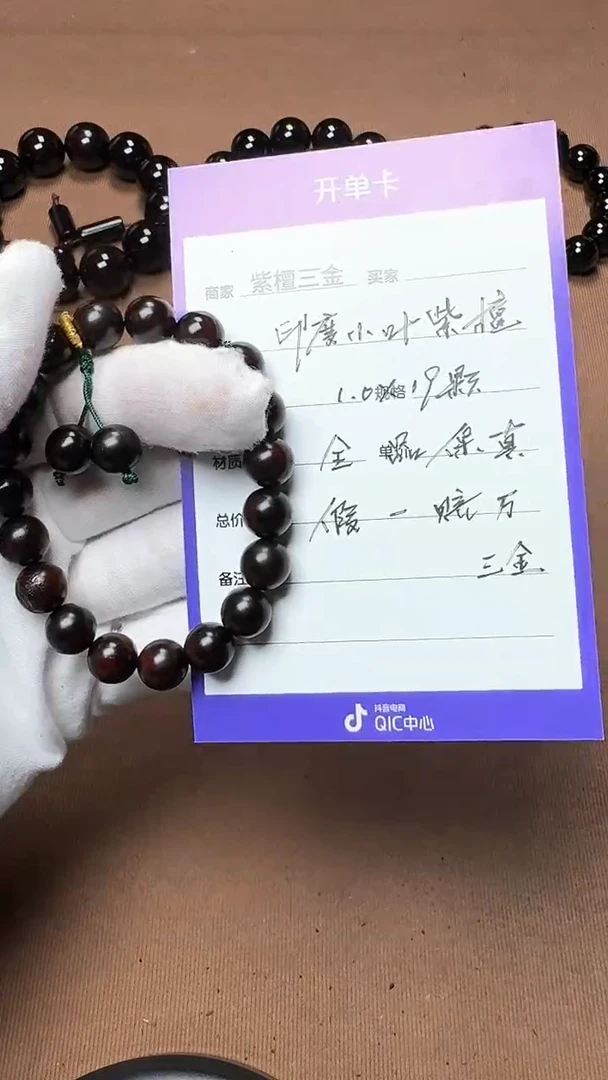 开单卡
商家 紫檀三金 买家
印度小叶紫檀
1.0规格19颗
材质 全 保真
总价 假一赔万
备注 三金
抖音电商
QIC中心